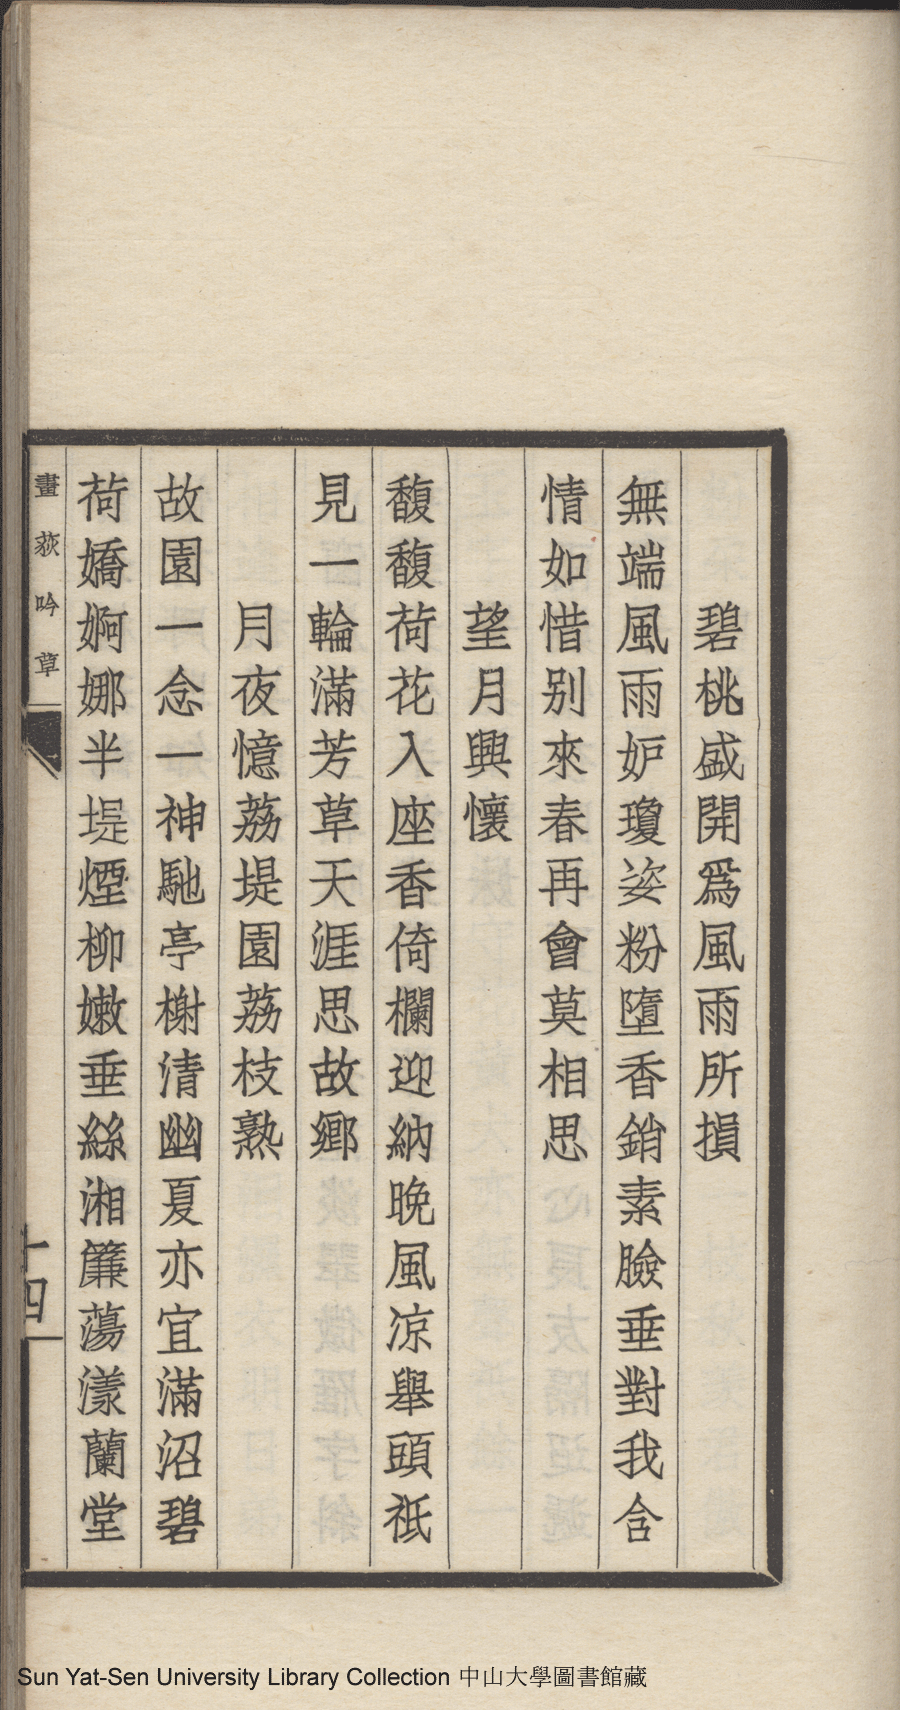 碧桃盛開爲風雨所損
無端風雨妒瓊姿粉墮香銷素臉垂對我含
情如惜别來春再會莫相思
望月興懷
馥馥荷花入座香倚欄迎納晚風凉舉頭祇
見一輪滿芳草天涯思故鄉
月夜憶荔堤園荔枝熟
故園一念一神馳亭榭清幽夏亦宜滿沼碧
荷嬌婀娜半堤煙柳嫩垂絲湘簾蕩漾蘭堂
畫荻吟草
十四
Sun Yat-Sen University Library Collection 中山大學圖書館藏